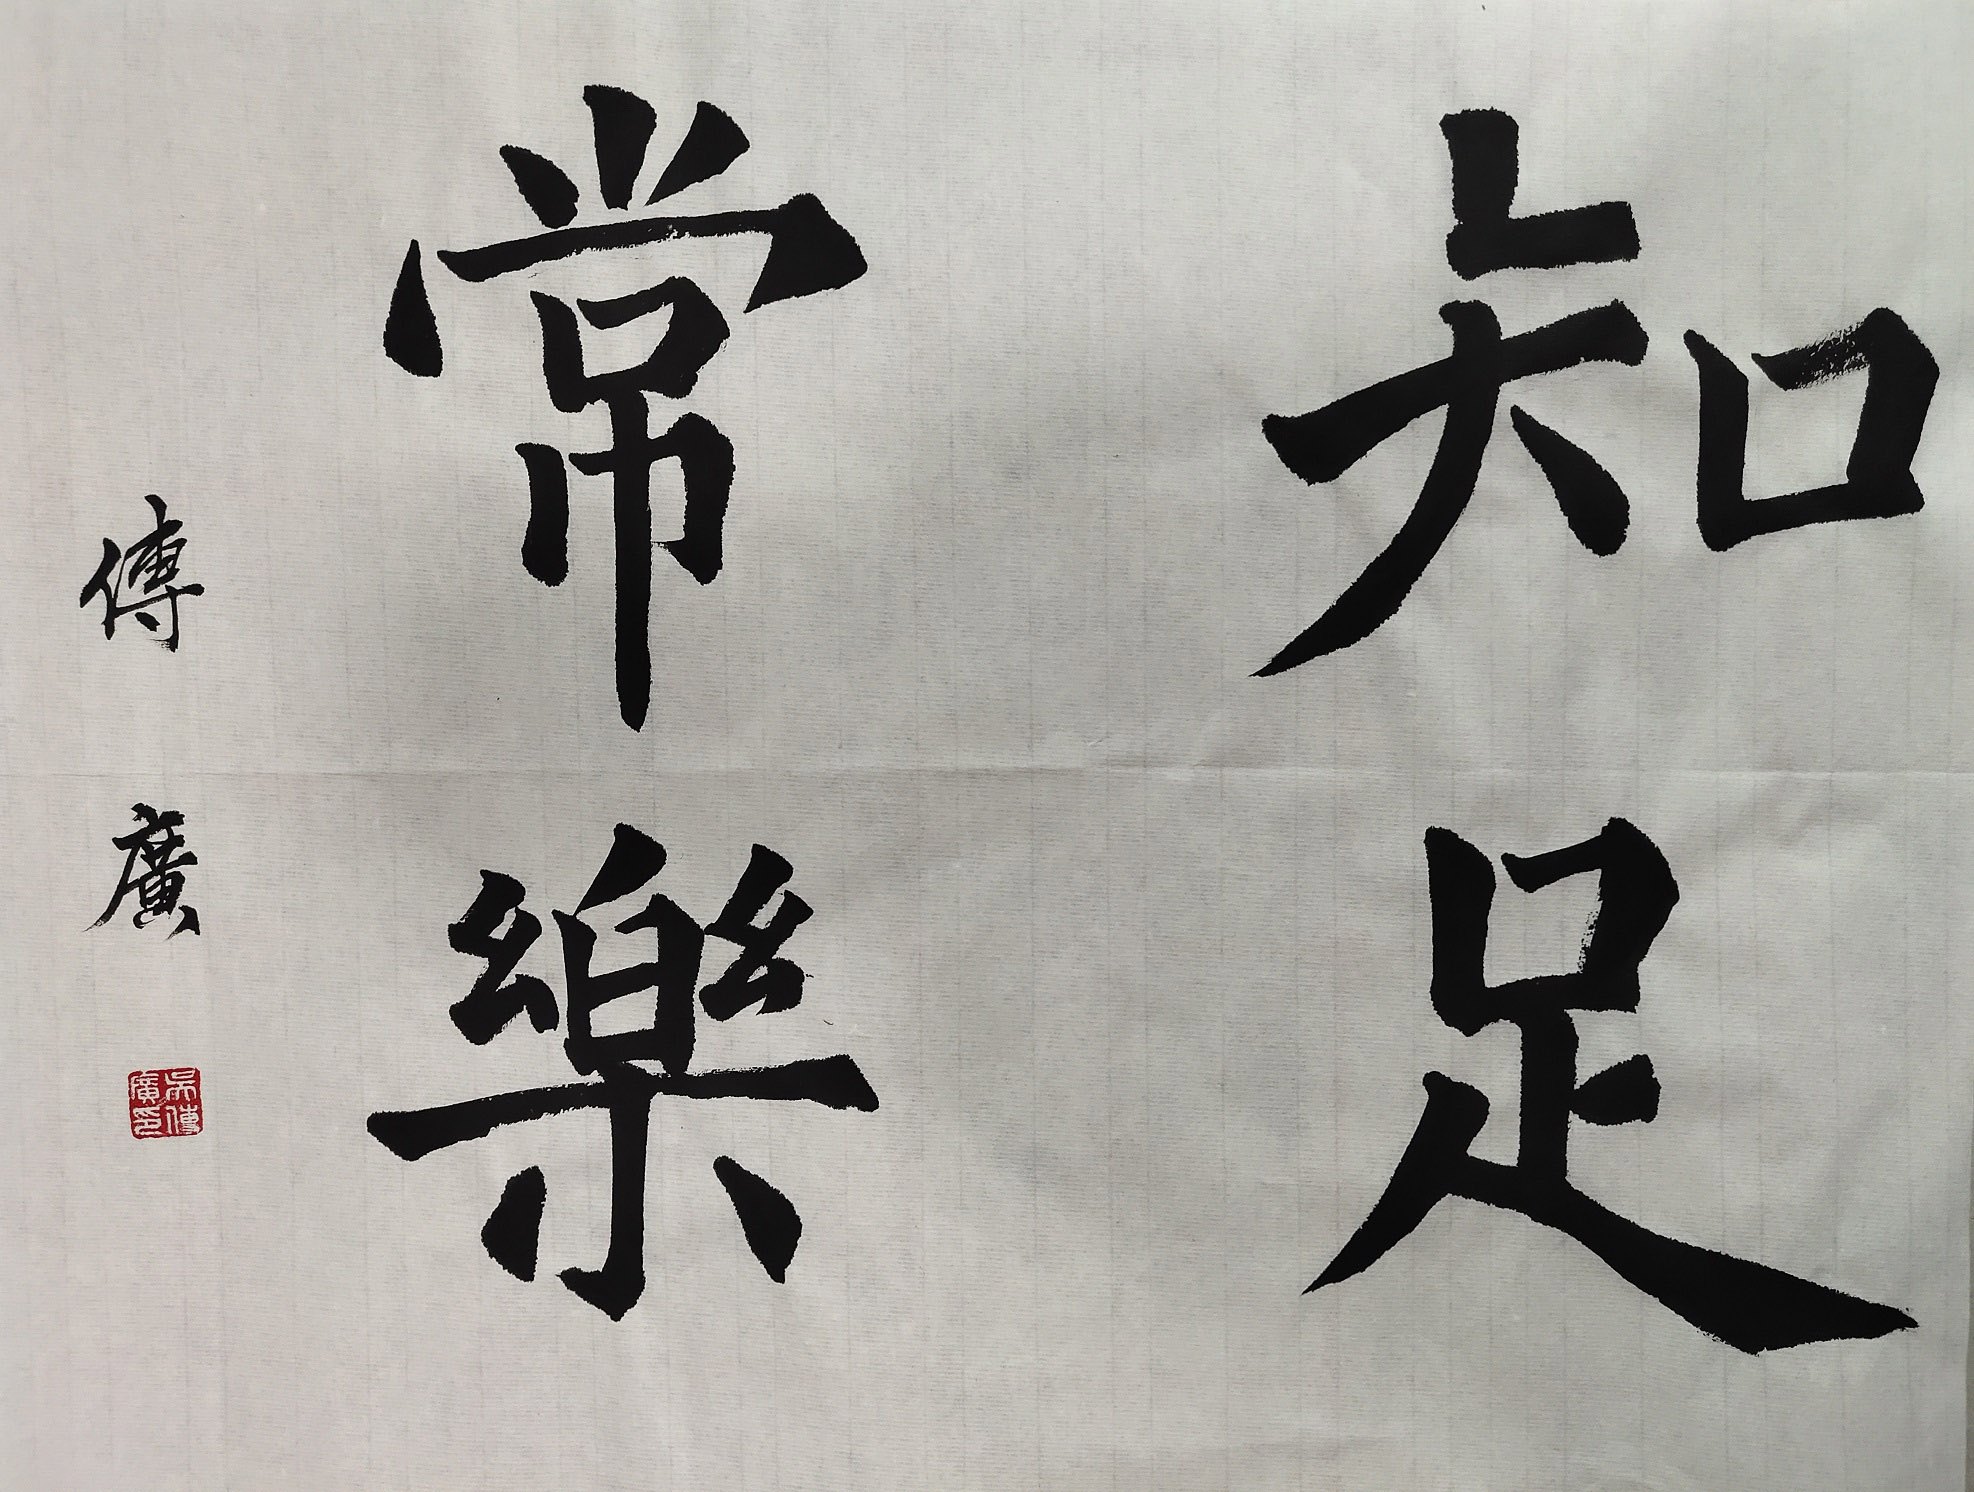 知足
常樂
傅廣
吴傅
廣印